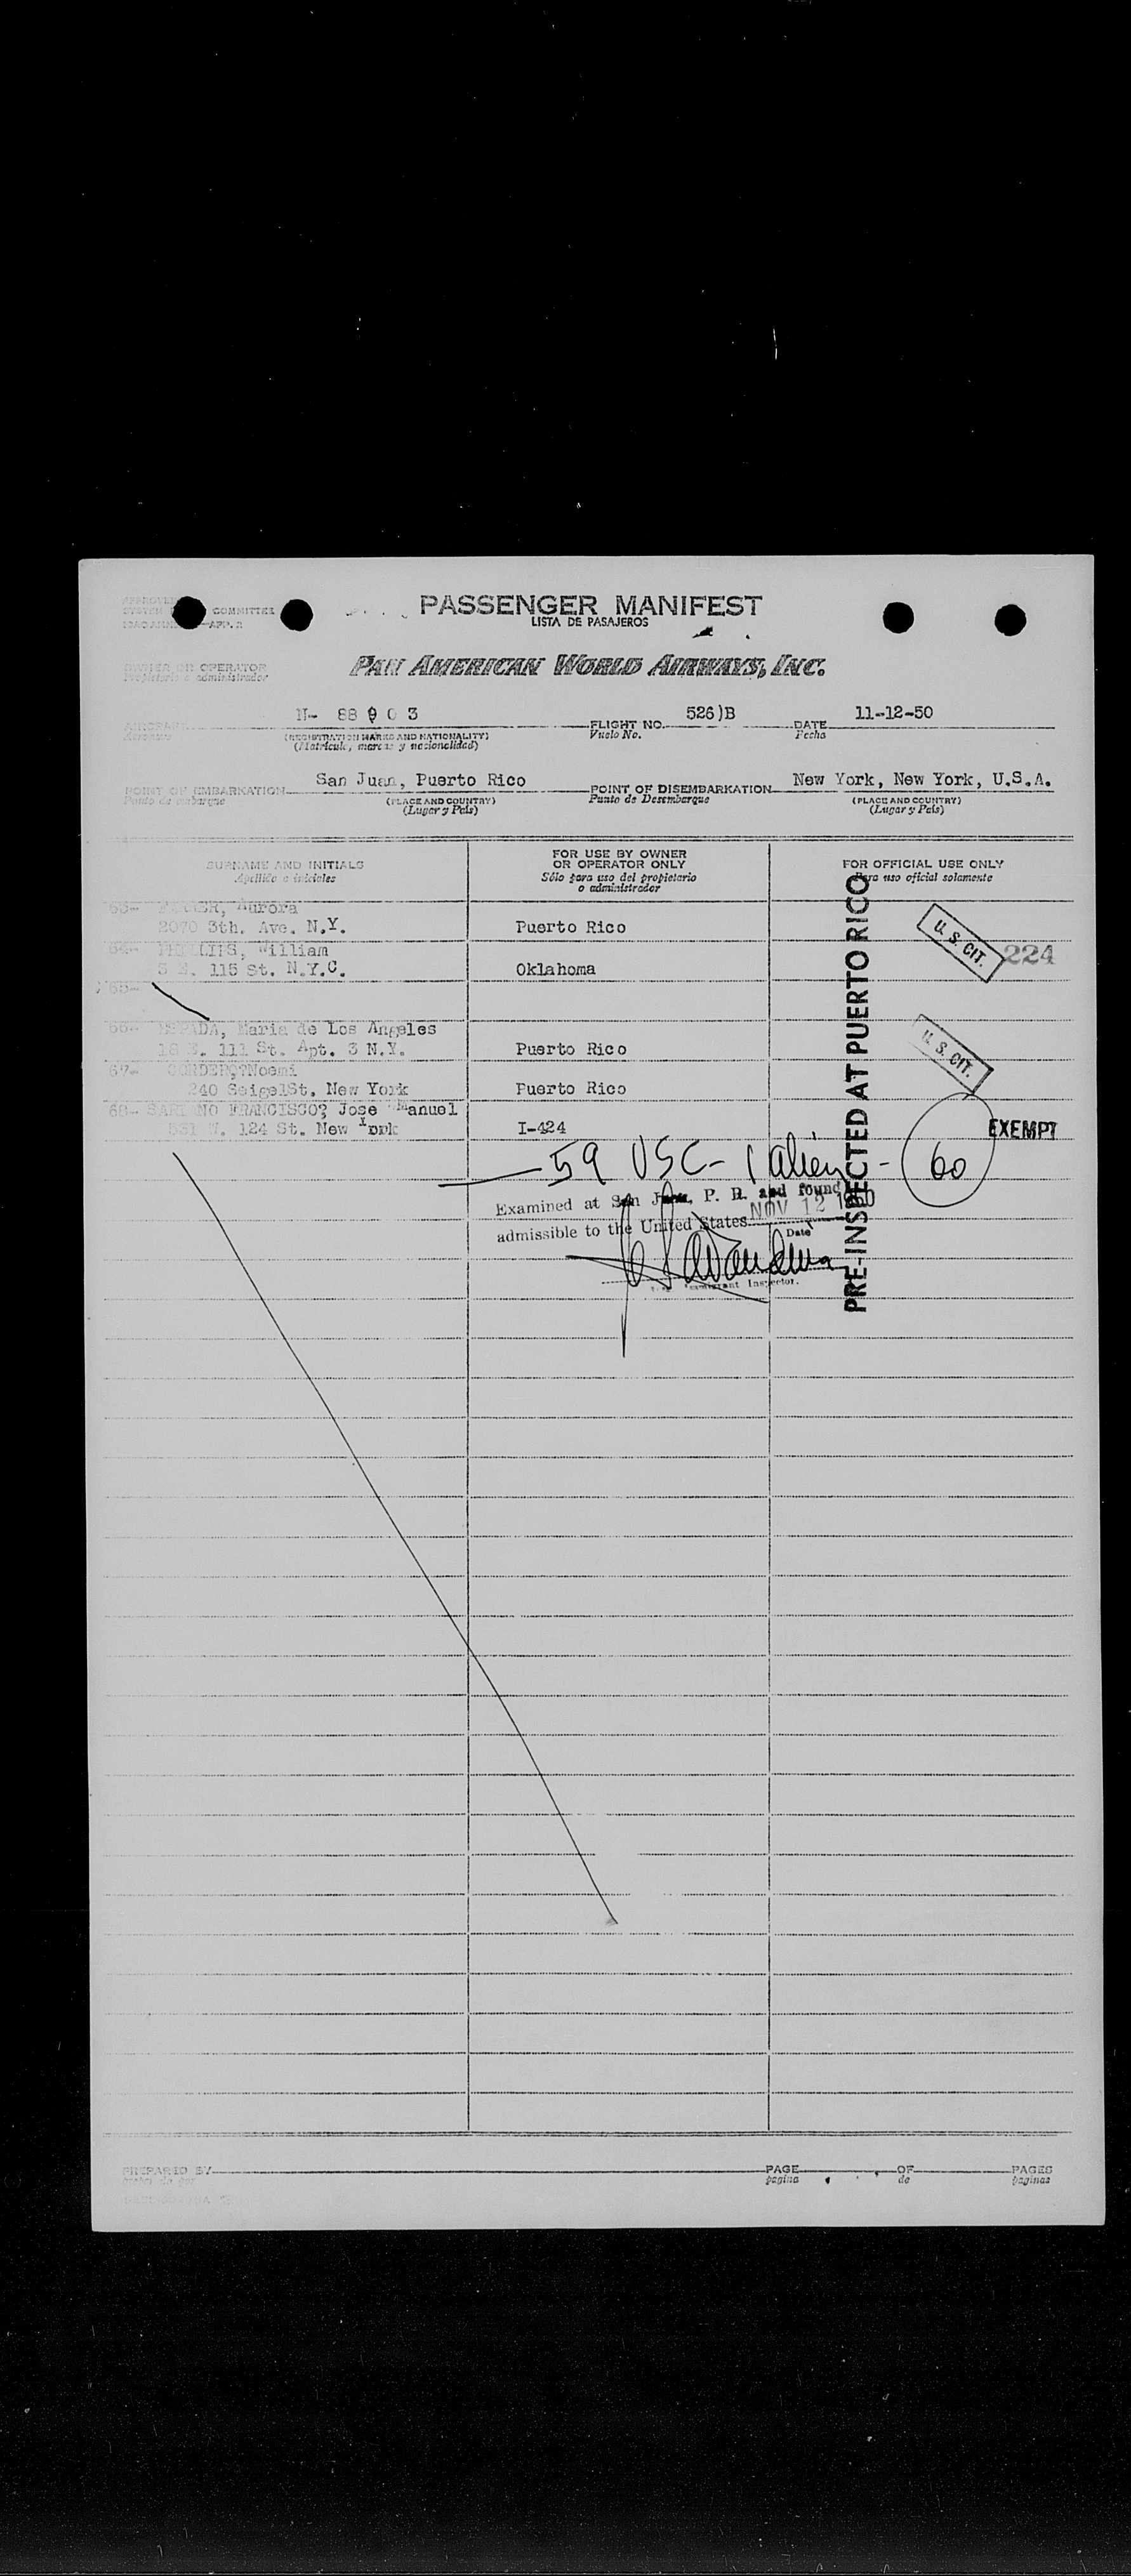 COMMITTEE
PASSENGER MANIFEST
LISTA DE PASAJEROS
OWNER OR OPERATOR
Propietario o administrador
PAN AMERICAN WORLD AIRWAYS, INC.
AIRCRAFT N- 88903 FLIGHT NO. 526)B DATE 11-12-50
(REGISTRATION MARKS AND NATIONALITY) Vuelo No. Fecha
(Matricula, marcas y nacionalidad)
POINT OF EMBARKATION San Juan, Puerto Rico POINT OF DISEMBARKATION New York, New York, U.S.A.
Punto de embarque (PLACE AND COUNTRY) Punto de Desembarque (PLACE AND COUNTRY)
(Lugar y País) (Lugar y País)
SURNAME AND INITIALS FOR USE BY OWNER OR OPERATOR ONLY FOR OFFICIAL USE ONLY
Apellido e iniciales Sólo para uso del propietario o administrador Para uso oficial solamente
63- Aurora
2070 3th. Ave. N.Y. Puerto Rico
64- PHILLIPS, William U. S. CIT. 224
5 E. 115 St. N.Y.C. Oklahoma
65-
66- Maria de Los Angeles
18 E. 111 St. Apt. 3 N.Y. Puerto Rico U. S. CIT.
67- CORDERO?Noemi
240 SeigelSt, New York Puerto Rico
68- FRANCISCO? Jose Manuel
531 W. 124 St. New I-424 EXEMPT
59 USC - 1 alien - 60
Examined at San Juan, P. R. and found
admissible to the United States NOV 12 1950
Date
Immigrant Inspector.
PRE-INSPECTED AT PUERTO RICO
PREPARED BY PAGE OF PAGES
página de páginas